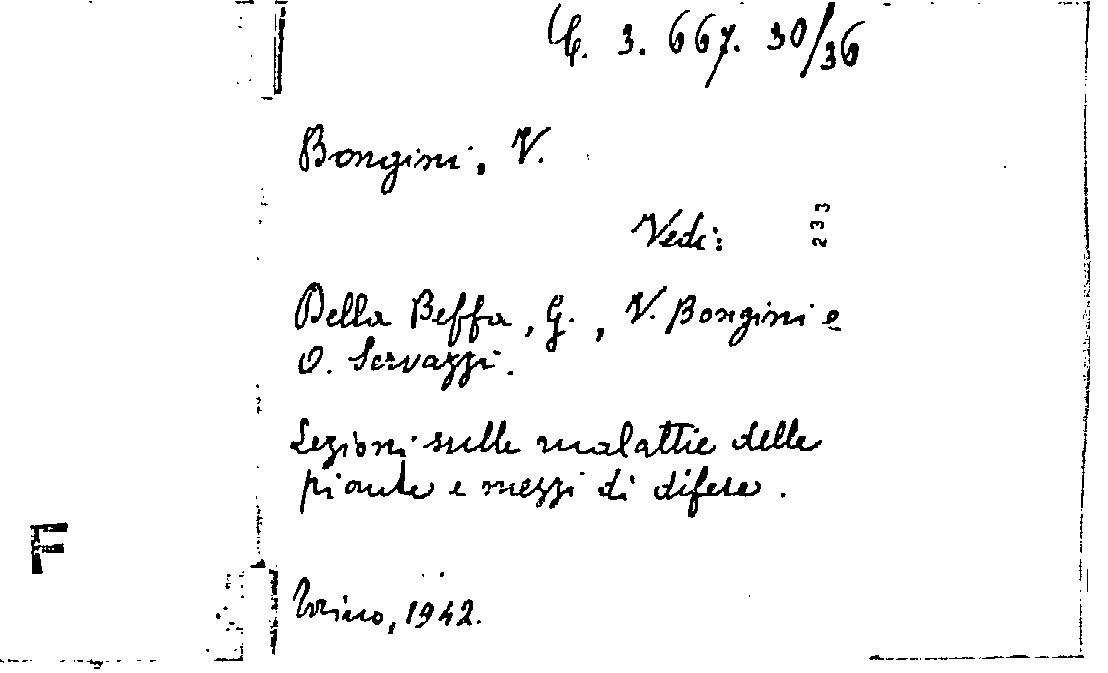 C. 3. 667. 30/36
Bongini, V.
Vedi:
233
Della Beffa, G., V. Bongini e
O. Servazzi.
Lezioni sulle malattie delle
piante e mezzi di difesa.
Torino, 1942.
F